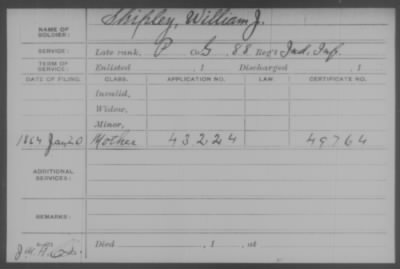 NAME OF SOLDIER: Shipley, William J.
SERVICE: Late rank, P Co. G, 88 Reg't Ind. Inf.
TERM OF SERVICE: Enlisted , 1 Discharged , 1
DATE OF FILING. CLASS. APPLICATION NO. LAW CERTIFICATE NO.
Invalid,
Widow,
Minor,
1864 Jan 20 Mother 43224 49764
ADDITIONAL SERVICES:
REMARKS:
Died , 1 , at